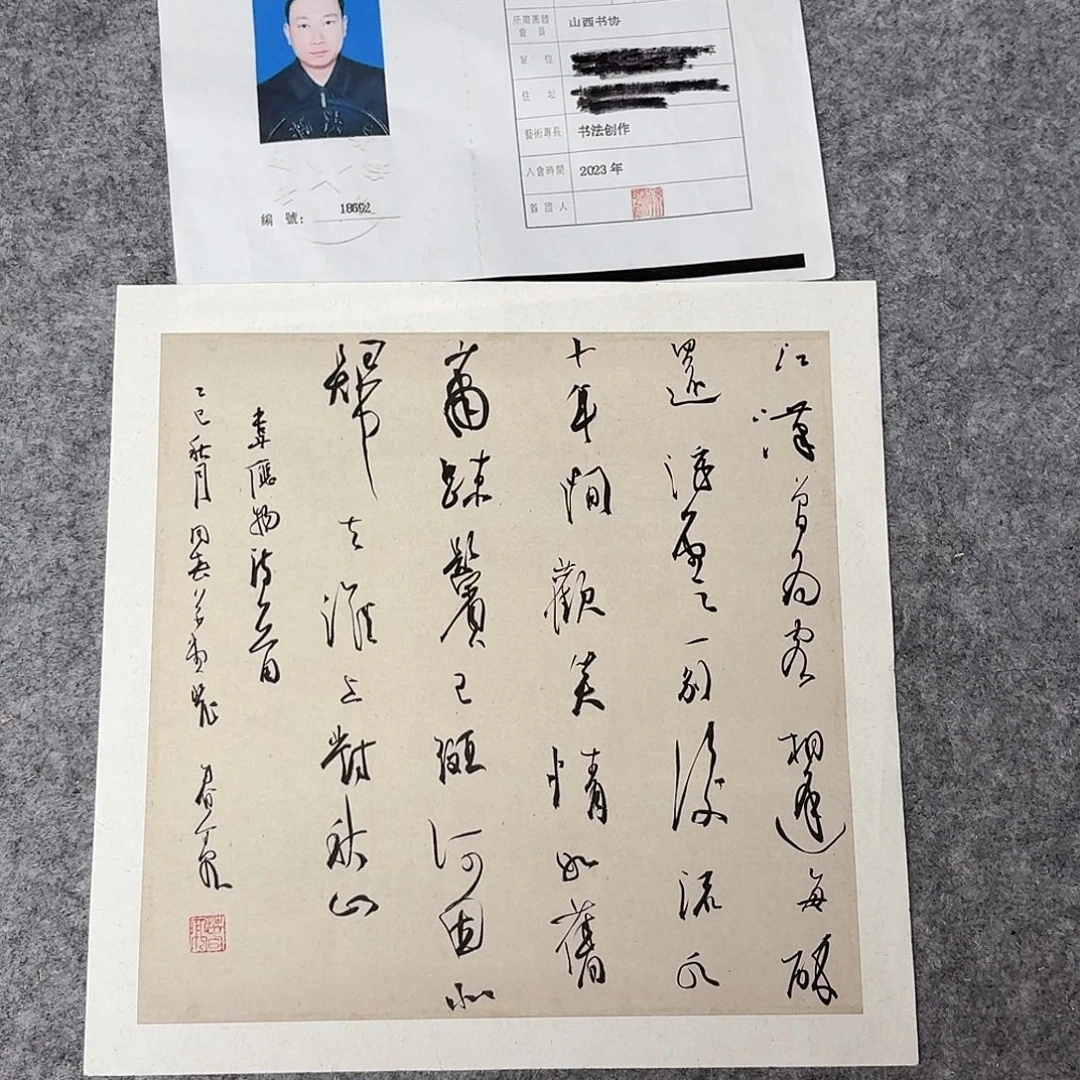 所屬團體
會員 山西书协
單位
住址
藝術專長 书法创作
入會時間 2023年
簽證人
編號: 18692
江漢曾為客相逢每醉
還浮雲一別後流水
十年間歡笑情如舊
蕭疎鬢已斑何因北
歸去淮上對秋山
韋應物詩一首
乙巳秋月